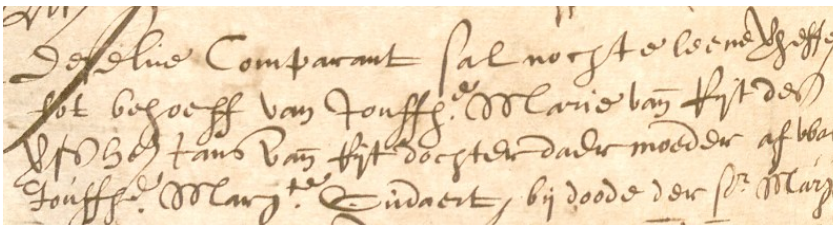 De selve Comparant sal noch te leene
tot behoeff van Jouffhe. Marie van Rijt des
Jans van Rijt dochter daer moeder af wa
Jouffhe. Margte. Eudaert, bij doode der sr. Marg